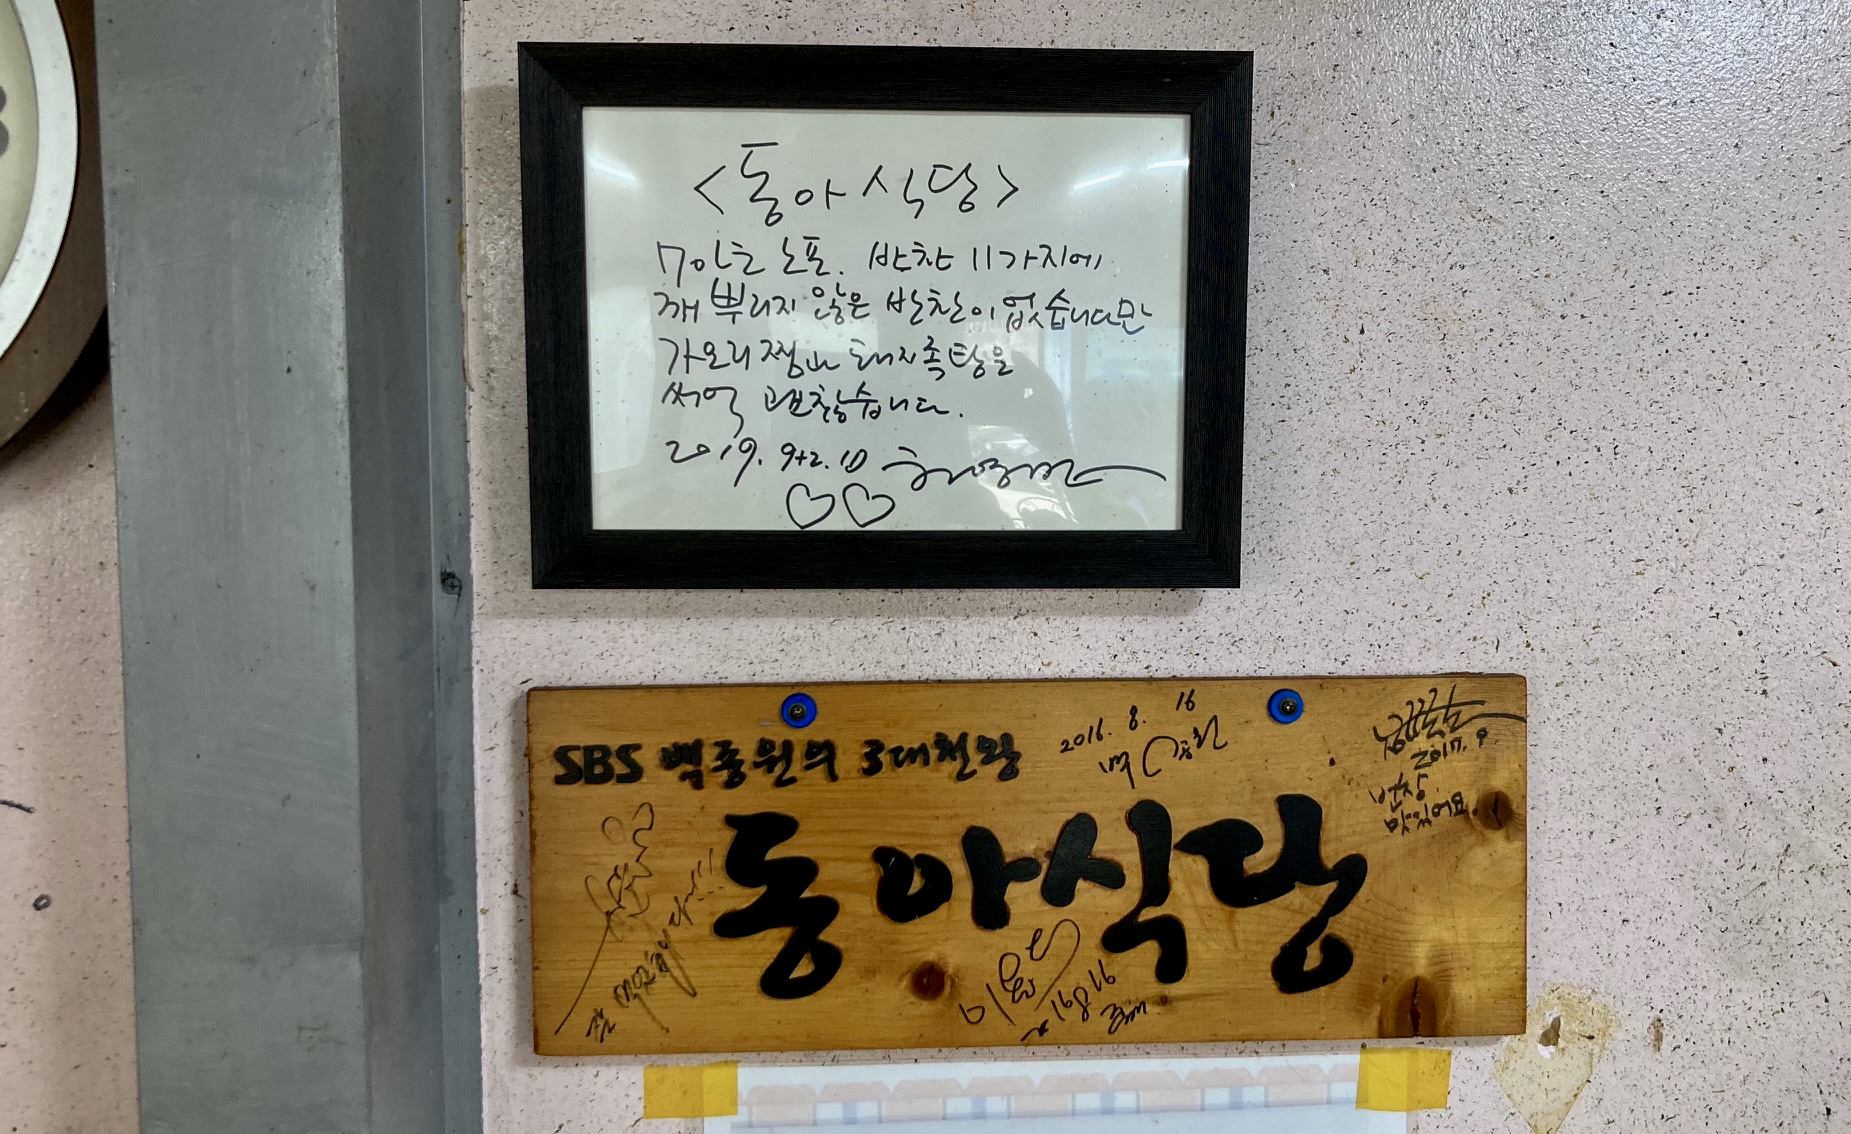 <동아식당>
70년 노포. 반찬 11가지에
깨 뿌리지 않은 반찬이 없습니다만
가오리찜과 돼지족탕은
써억 괜찮습니다.
2019. 9+2. 10
SBS 백종원의 3대천왕
2016. 8. 16
백종원
동아식당
2017. 9.
반찬
맛있어요.
참 맛있습니다!!!
16 8 16